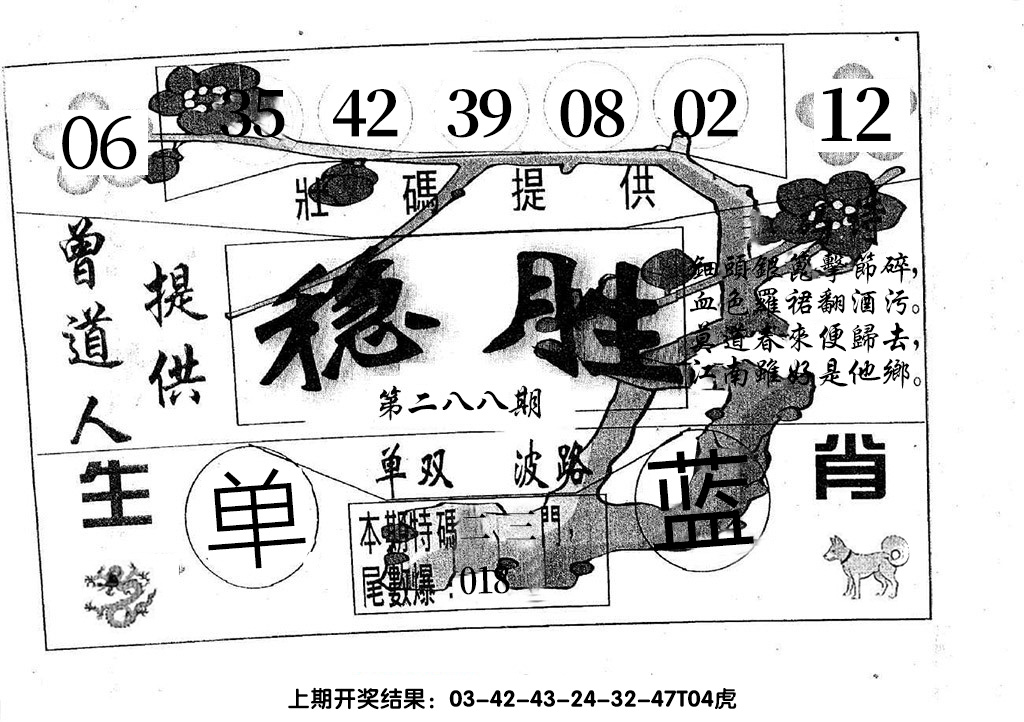 06 35 42 39 08 02 12
壯碼提供
曾道人
提供
穩胜
第二八八期
鈿頭銀篦擊節碎，
血色羅裙翻酒污。
莫道春來便歸去，
江南雖好是他鄉。
单双 波路
生 单 蓝 肖
本期特碼二、三門，
尾數爆：018
上期开奖结果：03-42-43-24-32-47T04虎